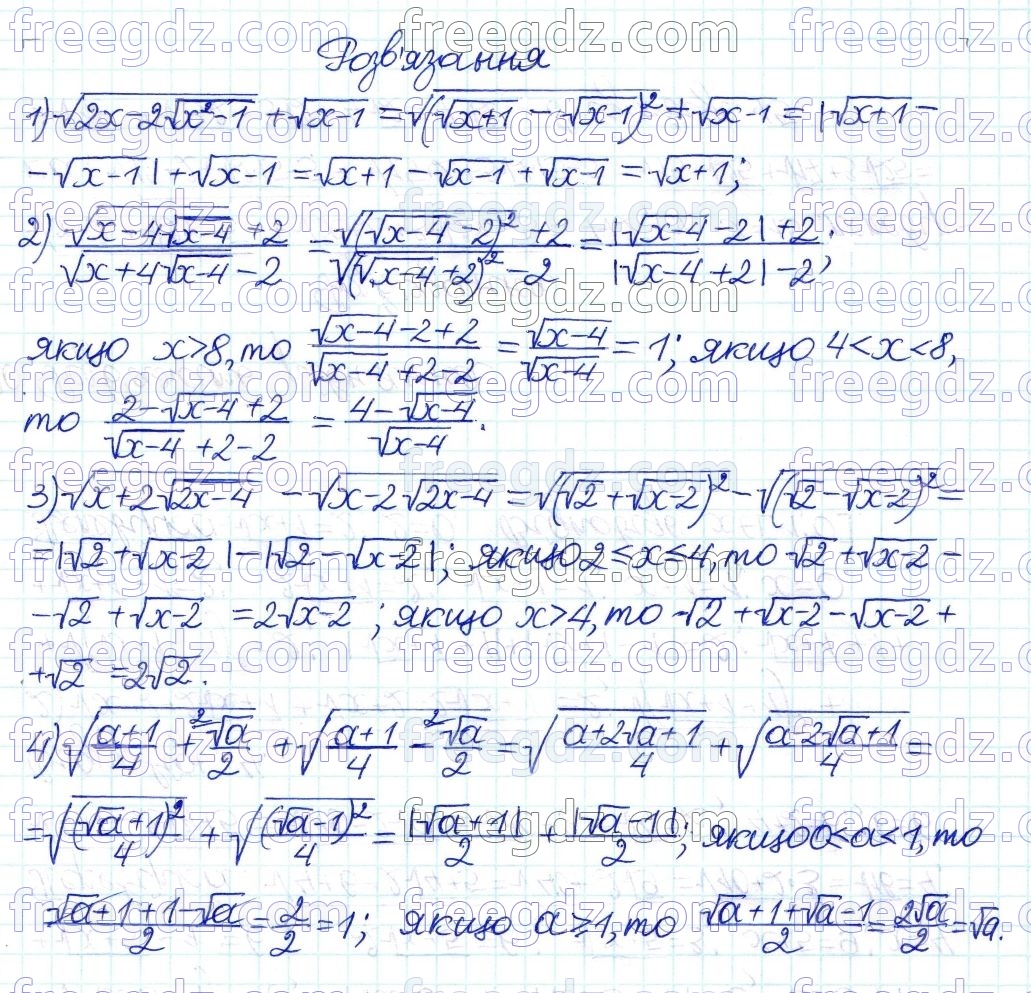 Розв'язання
1) √(2x-2√(x²-1)) + √(x-1) = √((√(x+1) - √(x-1))²) + √(x-1) = |√(x+1) -
- √(x-1)| + √(x-1) = √(x+1) - √(x-1) + √(x-1) = √(x+1);
2) (√(x-4√(x-4)) + 2)/(√(x+4√(x-4)) - 2) = (√((√(x-4) - 2)²) + 2)/(√((√(x-4) + 2)²) - 2) = (|√(x-4) - 2| + 2)/(|√(x-4) + 2| - 2);
якщо x>8, то (√(x-4) - 2 + 2)/(√(x-4) + 2 - 2) = √(x-4)/√(x-4) = 1; якщо 4<x<8,
то (2 - √(x-4) + 2)/(√(x-4) + 2 - 2) = (4 - √(x-4))/√(x-4).
3) √(x+2√(2x-4)) - √(x-2√(2x-4)) = √((√2 + √(x-2))²) - √((√2 - √(x-2))²) =
= |√2 + √(x-2)| - |√2 - √(x-2)|; якщо 2≤x≤4, то √2 + √(x-2) -
- √2 + √(x-2) = 2√(x-2); якщо x>4, то √2 + √(x-2) - √(x-2) +
+ √2 = 2√2.
4) √((a+1)/4 + ²√a/2) + √((a+1)/4 - ²√a/2) = √((a+2√a+1)/4) + √((a-2√a+1)/4) =
= √((√a+1)²/4) + √((√a-1)²/4) = |√a+1|/2 + |√a-1|/2; якщо 0<a<1, то
(√a+1+1-√a)/2 = 2/2 = 1; якщо a≥1, то (√a+1+√a-1)/2 = 2√a/2 = √a.
freegdz.com